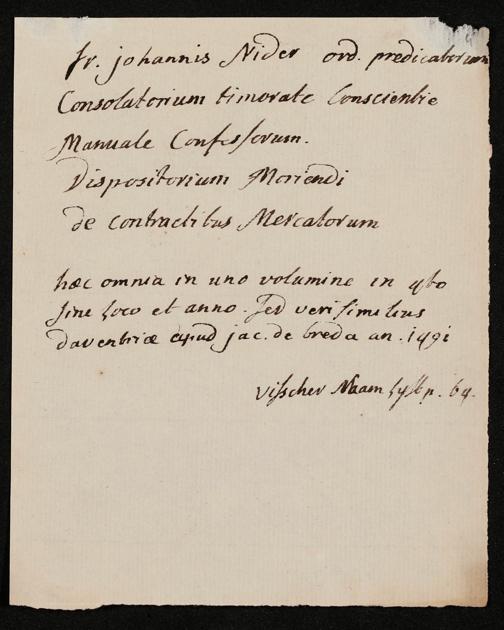 fr. johannis Nider ord. predicatorum
Consolatorium timorate Conscientie
Manuale Confessorum.
Dispositorium Moriendi
de contractibus Mercatorum
hæc omnia in uno volumine in 4to
sine loco et anno. sed verisimilius
daventriæ apud jac. de breda an. 1491
visscher Naam lyst p. 64.